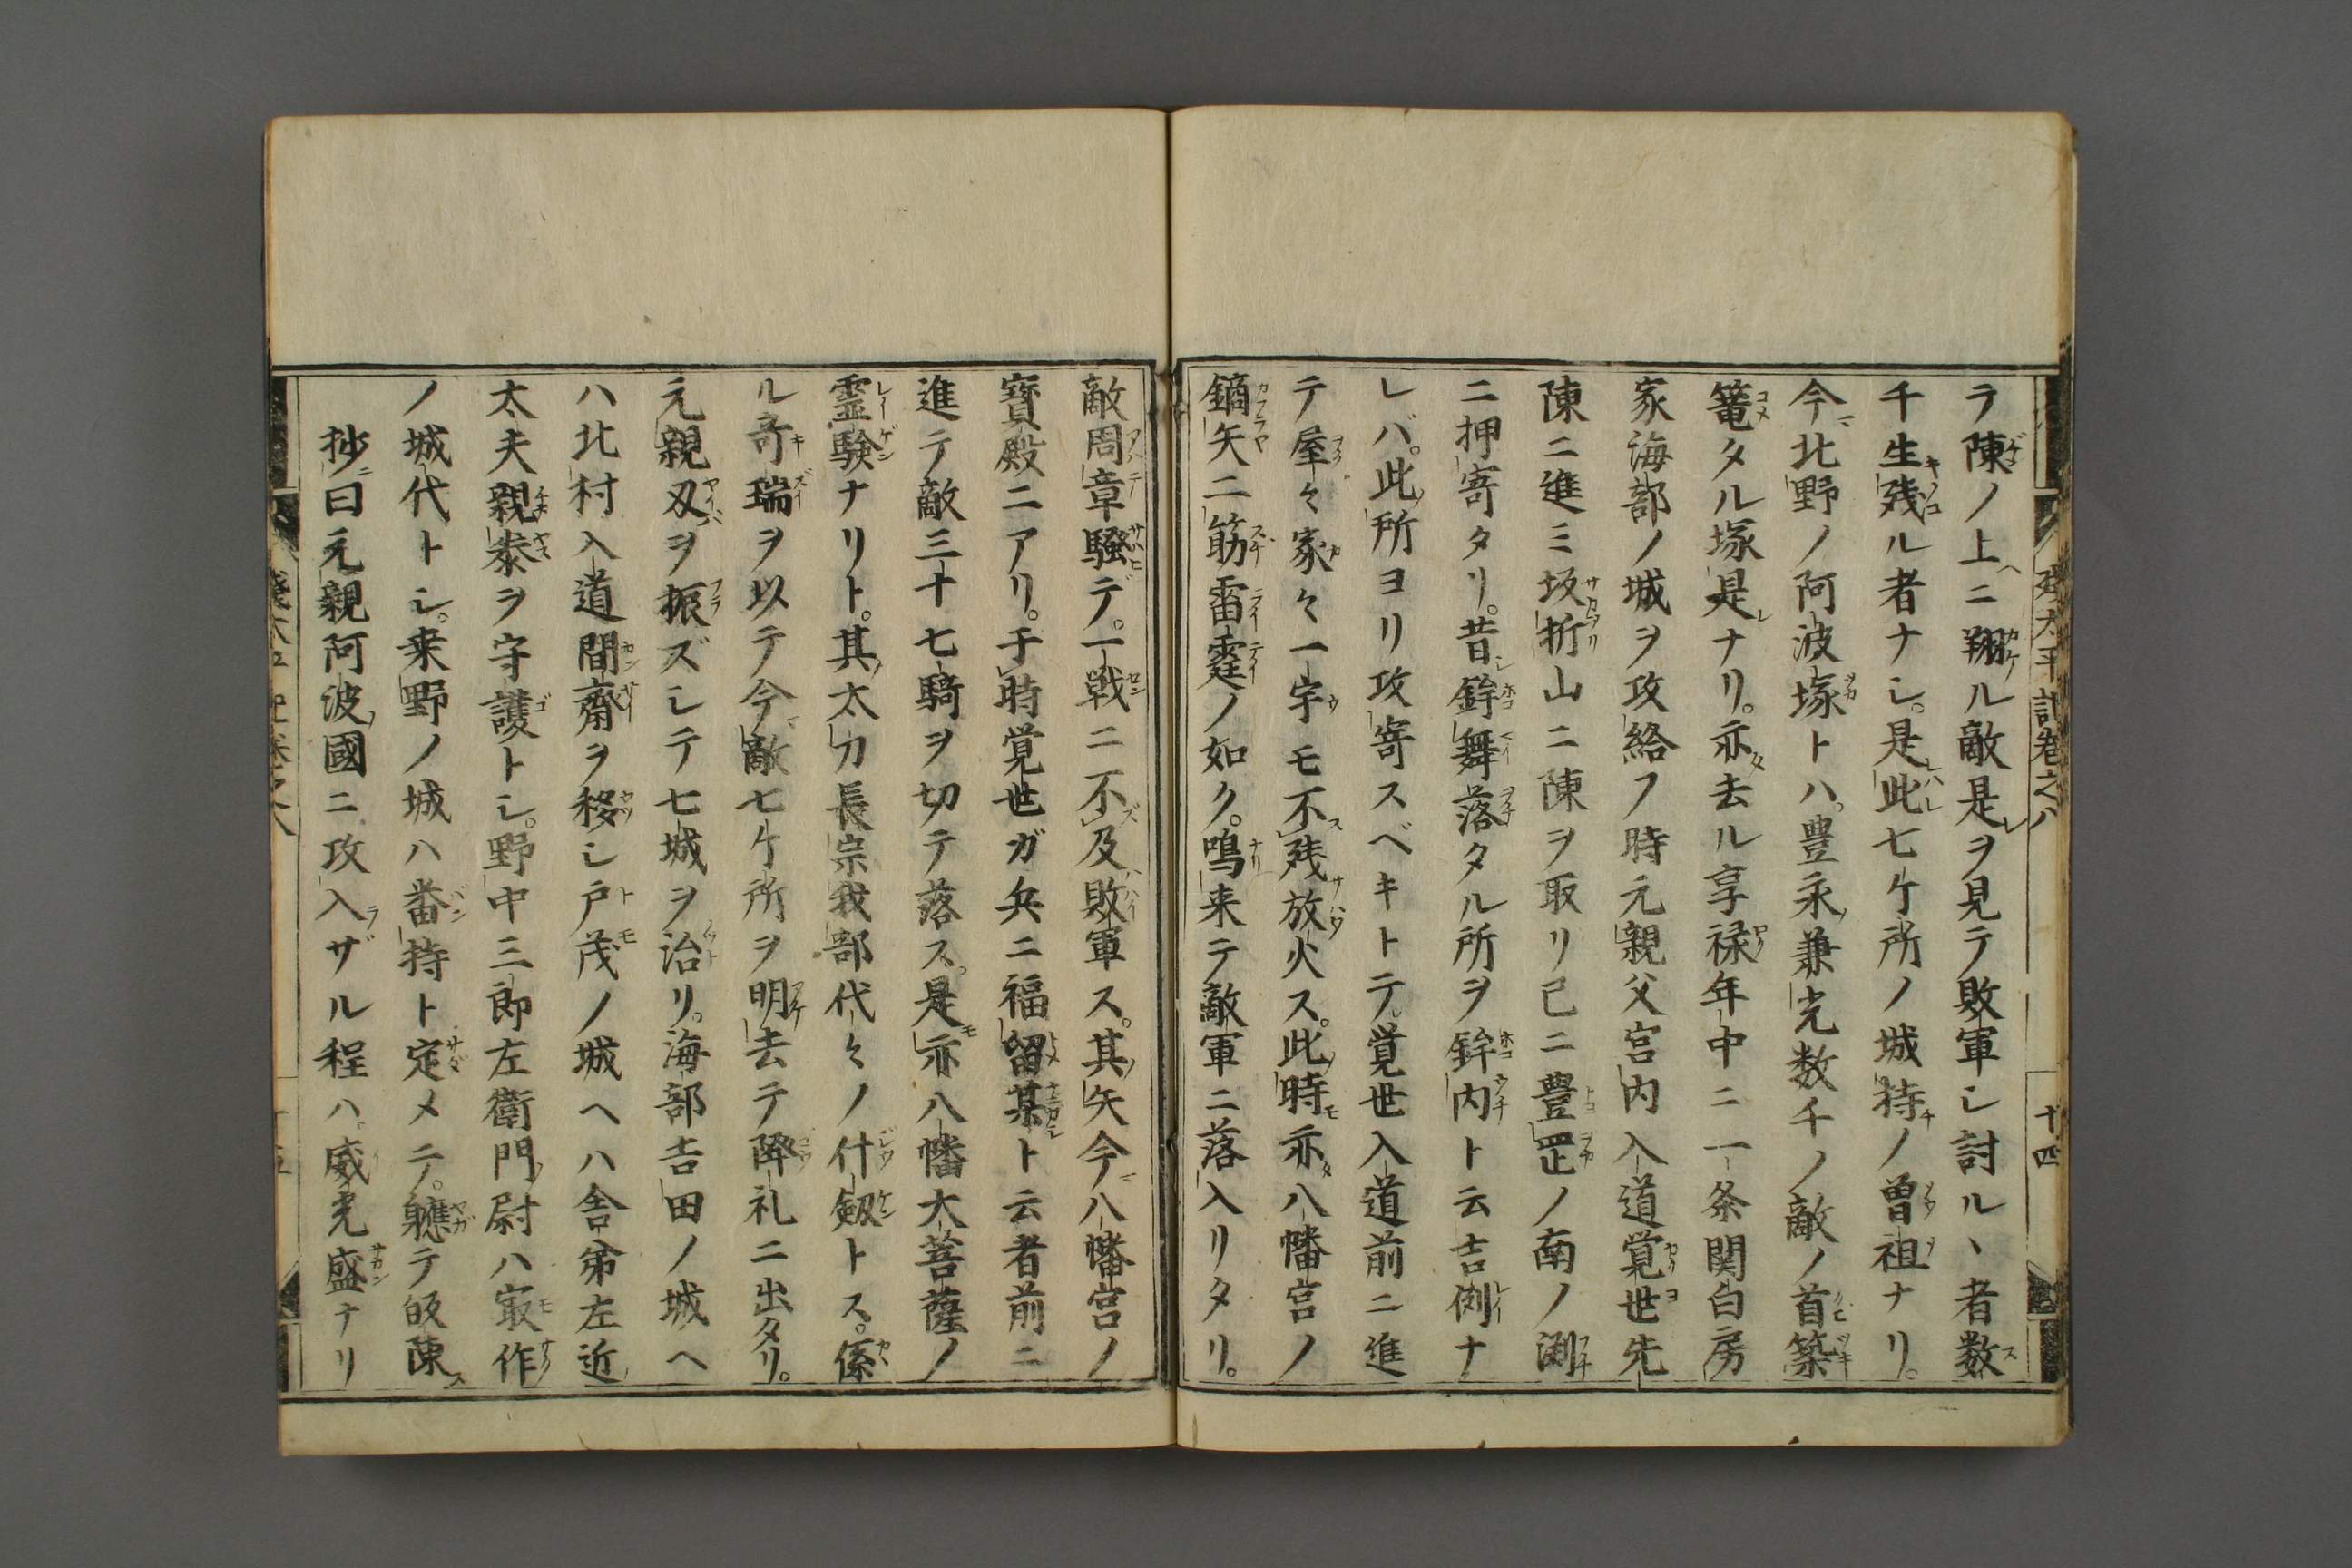 残太平記巻之八
十四
ラ陳ノ上ニ翔ル敵是ヲ見テ敗軍シ討ルヽ者数
千生残ル者ナシ。是此七ケ所ノ城持ノ曽祖ナリ。
今北野ノ阿波塚トハ。豊永兼光数千ノ敵ノ首築
篭タル塚是ナリ。亦去ル享禄年中ニ一条関白房
家海部ノ城ヲ攻給フ時元親父宮内入道覚世先
陳ニ進ミ坂折山ニ陳ヲ取リ已ニ豊罡ノ南ノ渕
ニ押寄タリ。昔鉾舞落タル所ヲ鉾内ト云吉例ナ
レバ。此所ヨリ攻寄スベキトテ。覚世入道前ニ進
テ屋々家々一宇モ不残放火ス。此時亦八幡宮ノ
鏑矢二筋雷霆ノ如ク。鳴来テ敵軍ニ落入リタリ。
敵周章騒デ。一戦ニ不及敗軍ス。其矢今八幡宮ノ
寳殿ニアリ。于時覚世ガ兵ニ福留某ト云者前ニ
進テ敵三十七騎ヲ切テ落ス。是亦八幡大菩薩ノ
霊験ナリト。其太刀長宗我部代々ノ什剱トス。係
ル奇瑞ヲ以テ今敵七ケ所ヲ明去テ降礼ニ出タリ。
元親刄ヲ振ズシテ七城ヲ治リ。海部吉田ノ城ヘ
ハ北村入道間齋ヲ移シ戸茂ノ城ヘハ舎弟左近
太夫親泰ヲ守護トシ。野中三郎左衛門尉ハ冣作
ノ城代トシ。来野ノ城ハ番持ト定メテ。軈テ皈陳ス
抄曰元親阿波國ニ攻入ザル程ハ。威光盛ナリ
残太平記巻之八
十五